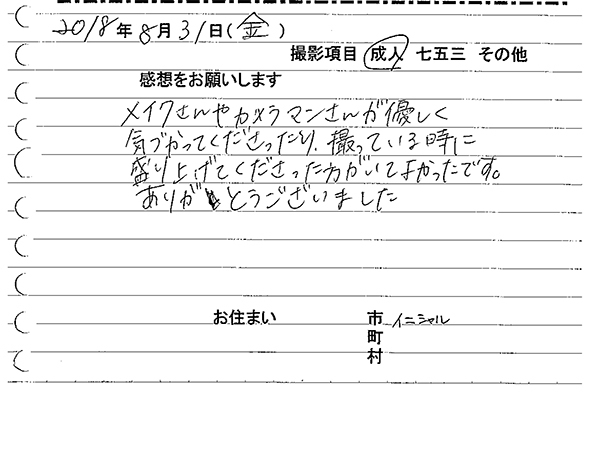 2018年8月31日(金)
撮影項目 成人 七五三 その他
感想をお願いします
メイクさんやカメラマンさんが優しく
気づかってくださったり、撮っている時に
盛り上げてくださった方がいてよかったです。
ありがとうございました
お住まい 市 イニシャル
町
村